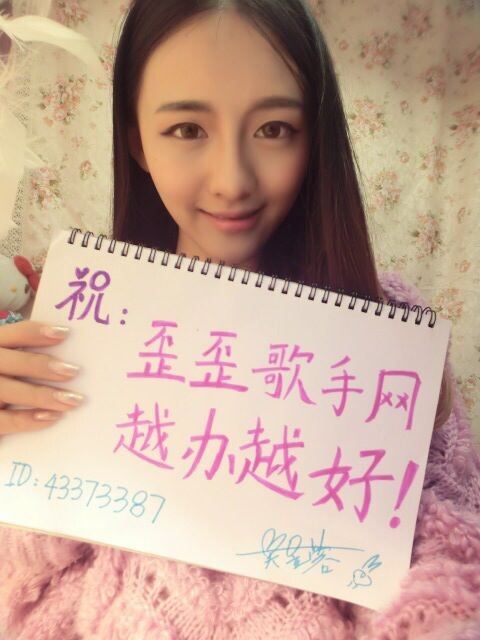 祝:
歪歪歌手网
越办越好!
ID:43373387